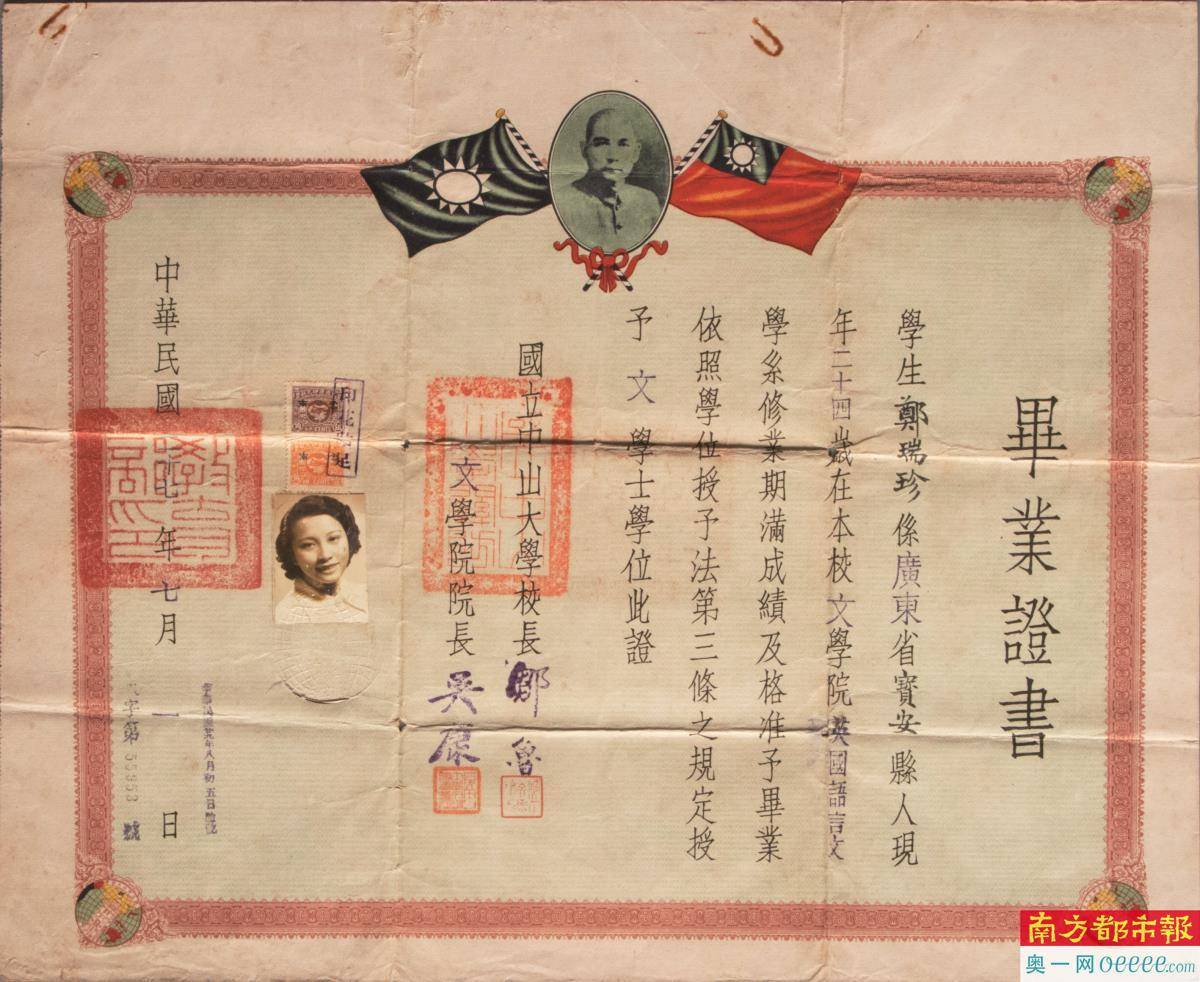 畢業證書
學生鄭瑞珍係廣東省寶安縣人現
年二十四歲在本校文學院英國語言文
學系修業期滿成績及格准予畢業
依照學位授予法第三條之規定授
予文學士學位此證
國立中山大學校長鄒魯
文學院院長吳康
中華民國廿七年七月一日
字第55953號
南方都市報
奥一网oeeee.com